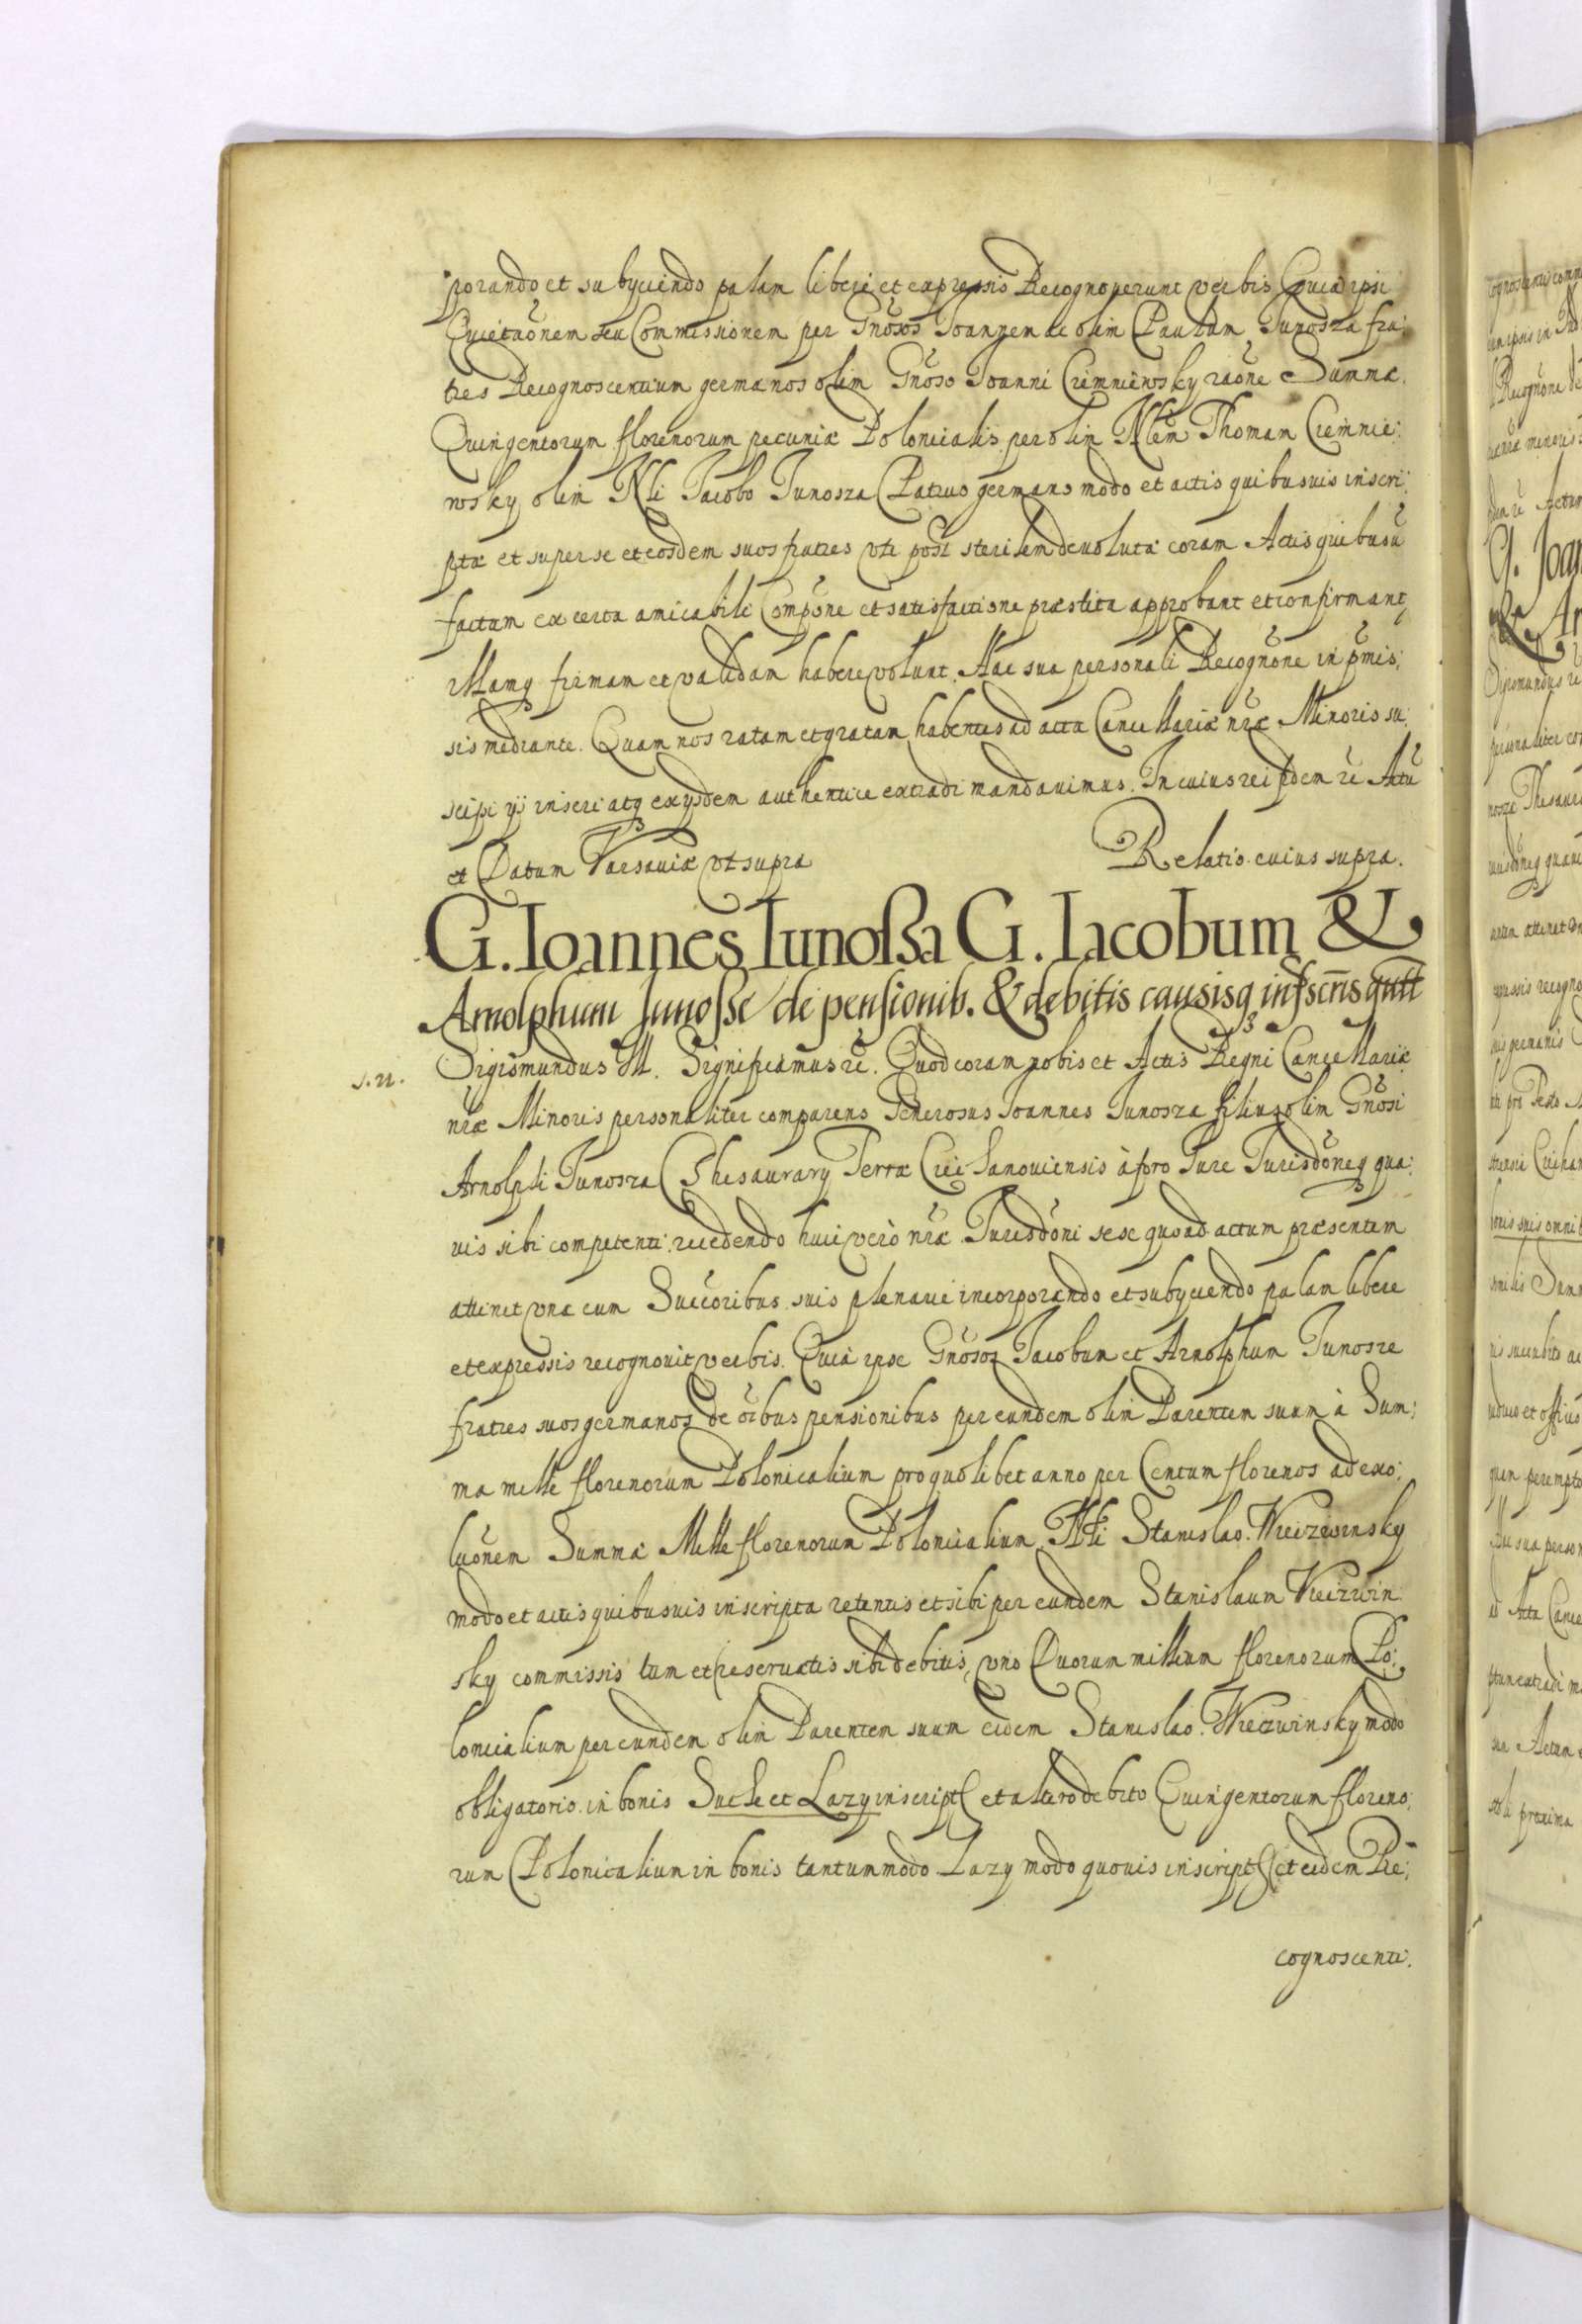 porando et subyciendo palam libere et expressis Recognoverunt verbis Quia ipsi
Quietaõnem seu Commissionem per Gnõsos Joannem ac olim Paulum Junosza fra:
tres Recognoscentium germanos olim Gnõso Joanni Cremniewsky raõne Summæ
Quingentorum florenorum pecuniæ Polonicalis per olim Nlem Thomam Cremnie:
wsky olim Nli Jacobo Junosza Patruo germano modo et actis quibusuis inscri:
ptæ et super se et eosdem suos fratres vti post sterilem deuolutæ coram Actis quibusũ
factam ex certa amicabili Compõne et satisfactione præstita approbant et confirmant
illamq firmam et validam habere volunt. Hac sua personali Recognõne in pmis:
sis mediante. Quam nos ratam et gratam habentes ad acta Cancellariæ nræ Minoris su:
scipi ÿs inseri atq ex ysdem authentice extradi mandauimus. In cuius rei fidem rc Actũ
et Datum Varsauiæ vt supra
Relatio cuius supra.
G. Ioannes Iunoßa G. Iacobum &
Arnolphum Junosße de pensionib. & debitis causisq infscrns quitt
J. N.
Sigismundus III. Significamus rc. Quod coram nobis et Actis Regni Cancellariæ
nræ Minoris personaliter comparens Generosus Joannes Junosza filius olim Gnõsi
Arnolphi Junosza Thesaurary Terræ Ciechanouiensis à pro Jure Jurisdõneq qua:
uis sibi competenti recedendo huic vero nræ Jurisdõni sese quoad actum præsentem
attinet vna cum Succoribus suis plenarie incorporando et subyciendo palam libere
et expressis recognouit verbis. Quia ipse Gnõsos Jacobum et Arnolphum Junosze
fratres suos germanos de oibus pensionibus per eundem olim Parentem suum à Sum:
ma mille florenorum Polonicalium pro quolibet anno per Centum florenos ad exo:
luõnem Summæ Mille florenorum Polonicalium Nli Stanislao Wieczwinsky
modo et actis quibusuis inscripta retentis et sibi per eundem Stanislaum Wieczwin:
sky commissis tum et reseruatis sibi debitis, vno Duorum millium florenorum Po:
lonicalium per eundem olim Parentem suum eidem Stanislao Wieczwinsky modo
obligatorio in bonis Suche et Lazy inscript et altero debito Quingentorum floreno:
rum Polonicalium in bonis tantummodo Lazy modo quouis inscript et eidem Re:
cognoscenti.